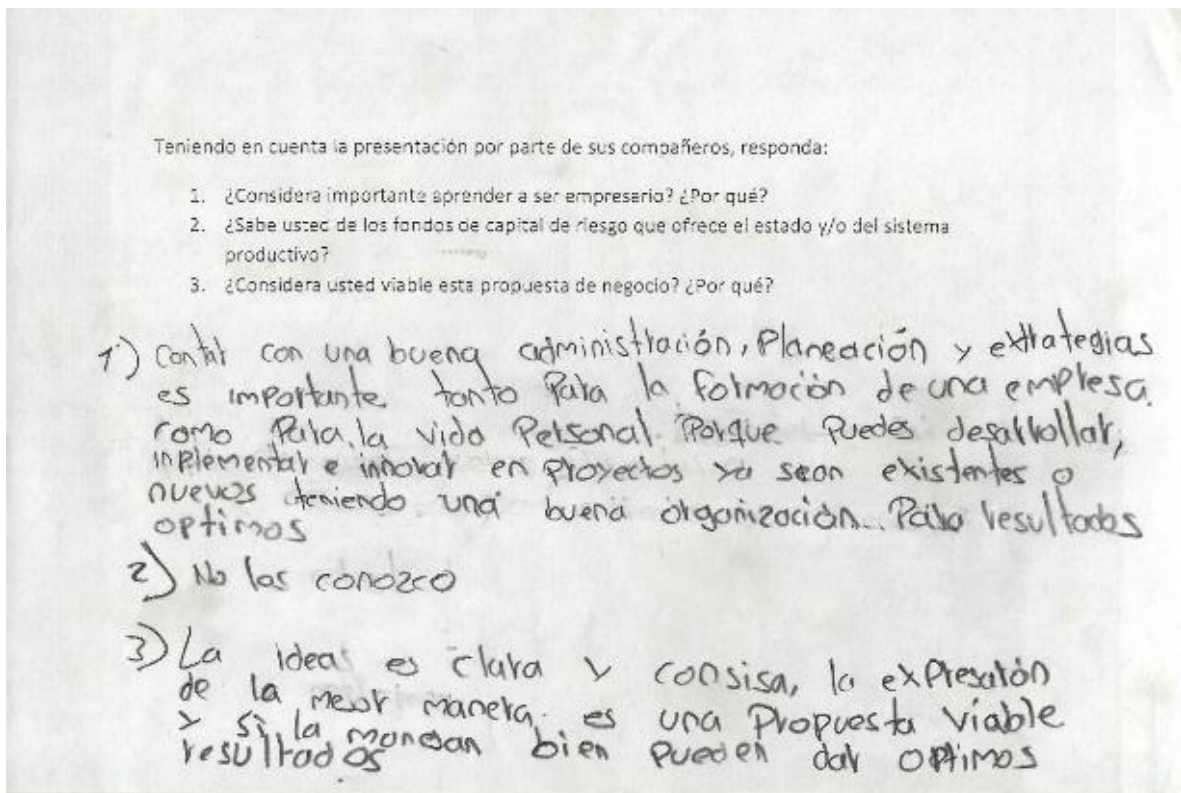 Teniendo en cuenta la presentación por parte de sus compañeros, responda:
1. ¿Considera importante aprender a ser empresario? ¿Por qué?
2. ¿Sabe usted de los fondos de capital de riesgo que ofrece el estado y/o del sistema
productivo?
3. ¿Considera usted viable esta propuesta de negocio? ¿Por qué?
1) Contar con una buena administración, Planeación y extrategias
es importante tanto Para la formación de una empresa.
como Para la vida Personal. Porque Puedes desarrollar,
inplementar e innovar en Proyectos ya sean existentes o
nuevos teniendo una buena organización. Para resultados
optimos
2) No los conozco
3) La idea es clara y consisa, la expresarón
de la mejor manera. es una Propuesta viable
y si la manejan bien pueden dar optimos
resultados